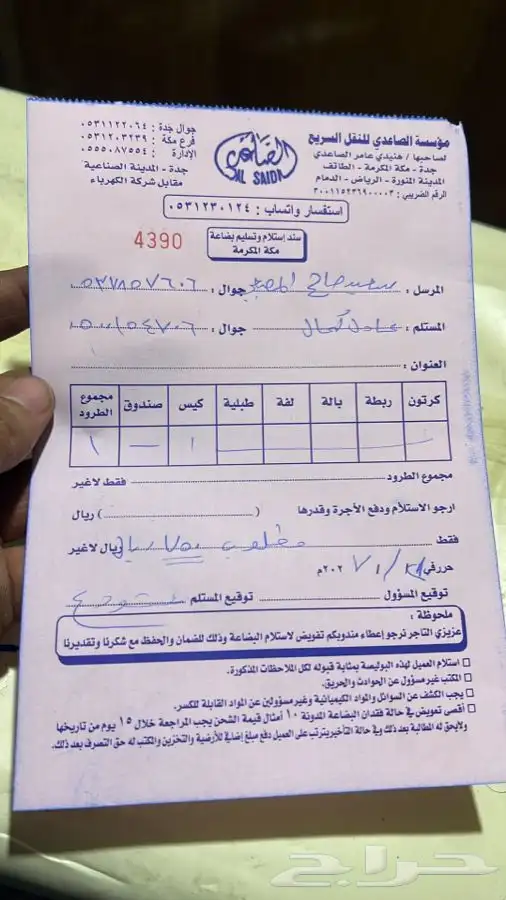 مؤسسة الصاعدي للنقل السريع
لصاحبها / هنيدي عامر الصاعدي
جدة - مكة المكرمة - الطائف
المدينة المنورة - الرياض - الدمام
الرقم الضريبي : ٣٠٠١١٥٤٣٦٩٠٠٠٠٣
الصاعدي
AL SAIDI
جوال جدة : ٠٥٣١١٢٢٠٦٤
فرع مكة : ٠٥٣١٢٠٣٢٣٩
الإدارة : ٠٥٥٥٠٨٧٥٥٤
جدة - المدينة الصناعية
مقابل شركة الكهرباء
استفسار واتساب : ٠٥٣١٢٣٠١٢٤
سند إستلام وتسليم بضاعة
مكة المكرمة
4390
المرسل : سعيد صالح جوال : ٠٥٣٧٨٥٧٦٠٦
المستلم : عادل كمال جوال :
العنوان :
كرتون ربطة بالة لفة طبلية كيس صندوق مجموع الطرود
١ — ١
مجموع الطرود فقط لاغير
ارجو الاستلام ودفع الأجرة وقدرها ( ) ريال
فقط مطلوب ٧٥٠ ريال ريال لاغير
حرر في / ١ / ٢٠٢م
توقيع المسؤول توقيع المستلم
ملحوظة :
عزيزي التاجر نرجو إعطاء مندوبكم تفويض لاستلام البضاعة وذلك للضمان والحفظ مع شكرنا وتقديرنا
استلام العميل لهذه البوليصة بمثابة قبوله لكل الملاحظات المذكورة.
المكتب غير مسؤول عن الحوادث والحريق.
يجب الكشف عن السوائل والمواد الكيميائية وغير مسؤولين عن المواد القابلة للكسر.
أقصى تعويض في حالة فقدان البضاعة المدونة ١٠ أمثال قيمة الشحن يجب المراجعة خلال ١٥ يوم من تاريخها
ولايحق له المطالبة بعد ذلك وفي حالة التأخير يترتب على العميل دفع مبلغ إضافي للأرضية والتخزين والمكتب له حق التصرف بعد ذلك.
حراج